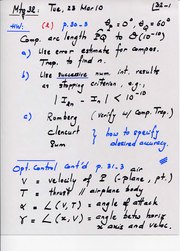 Mtg 32: Tue, 23 Mar 10 32-1
HW: (2) p.30-3 θP = 0°, θQ = 60°
Comp. arc length PQ to O(10^-10)
a) Use error estimate for compos.
Trap. to find n.
b) Use successive num. int. results
as stopping criterion, e.g.,
| I2n - In | < 10^-10
c) Romberg (verify w/ comp. Trap.)
Clencurt } how to specify
Sum desired accuracy.
Opt. Control cont'd p.31-3
V = velocity of air plane, pt.)
T = thrust // airplane body
α = ∠(V, T) = angle of attack
γ = ∠(x, V) = angle betw. horiz
x axis and veloc.